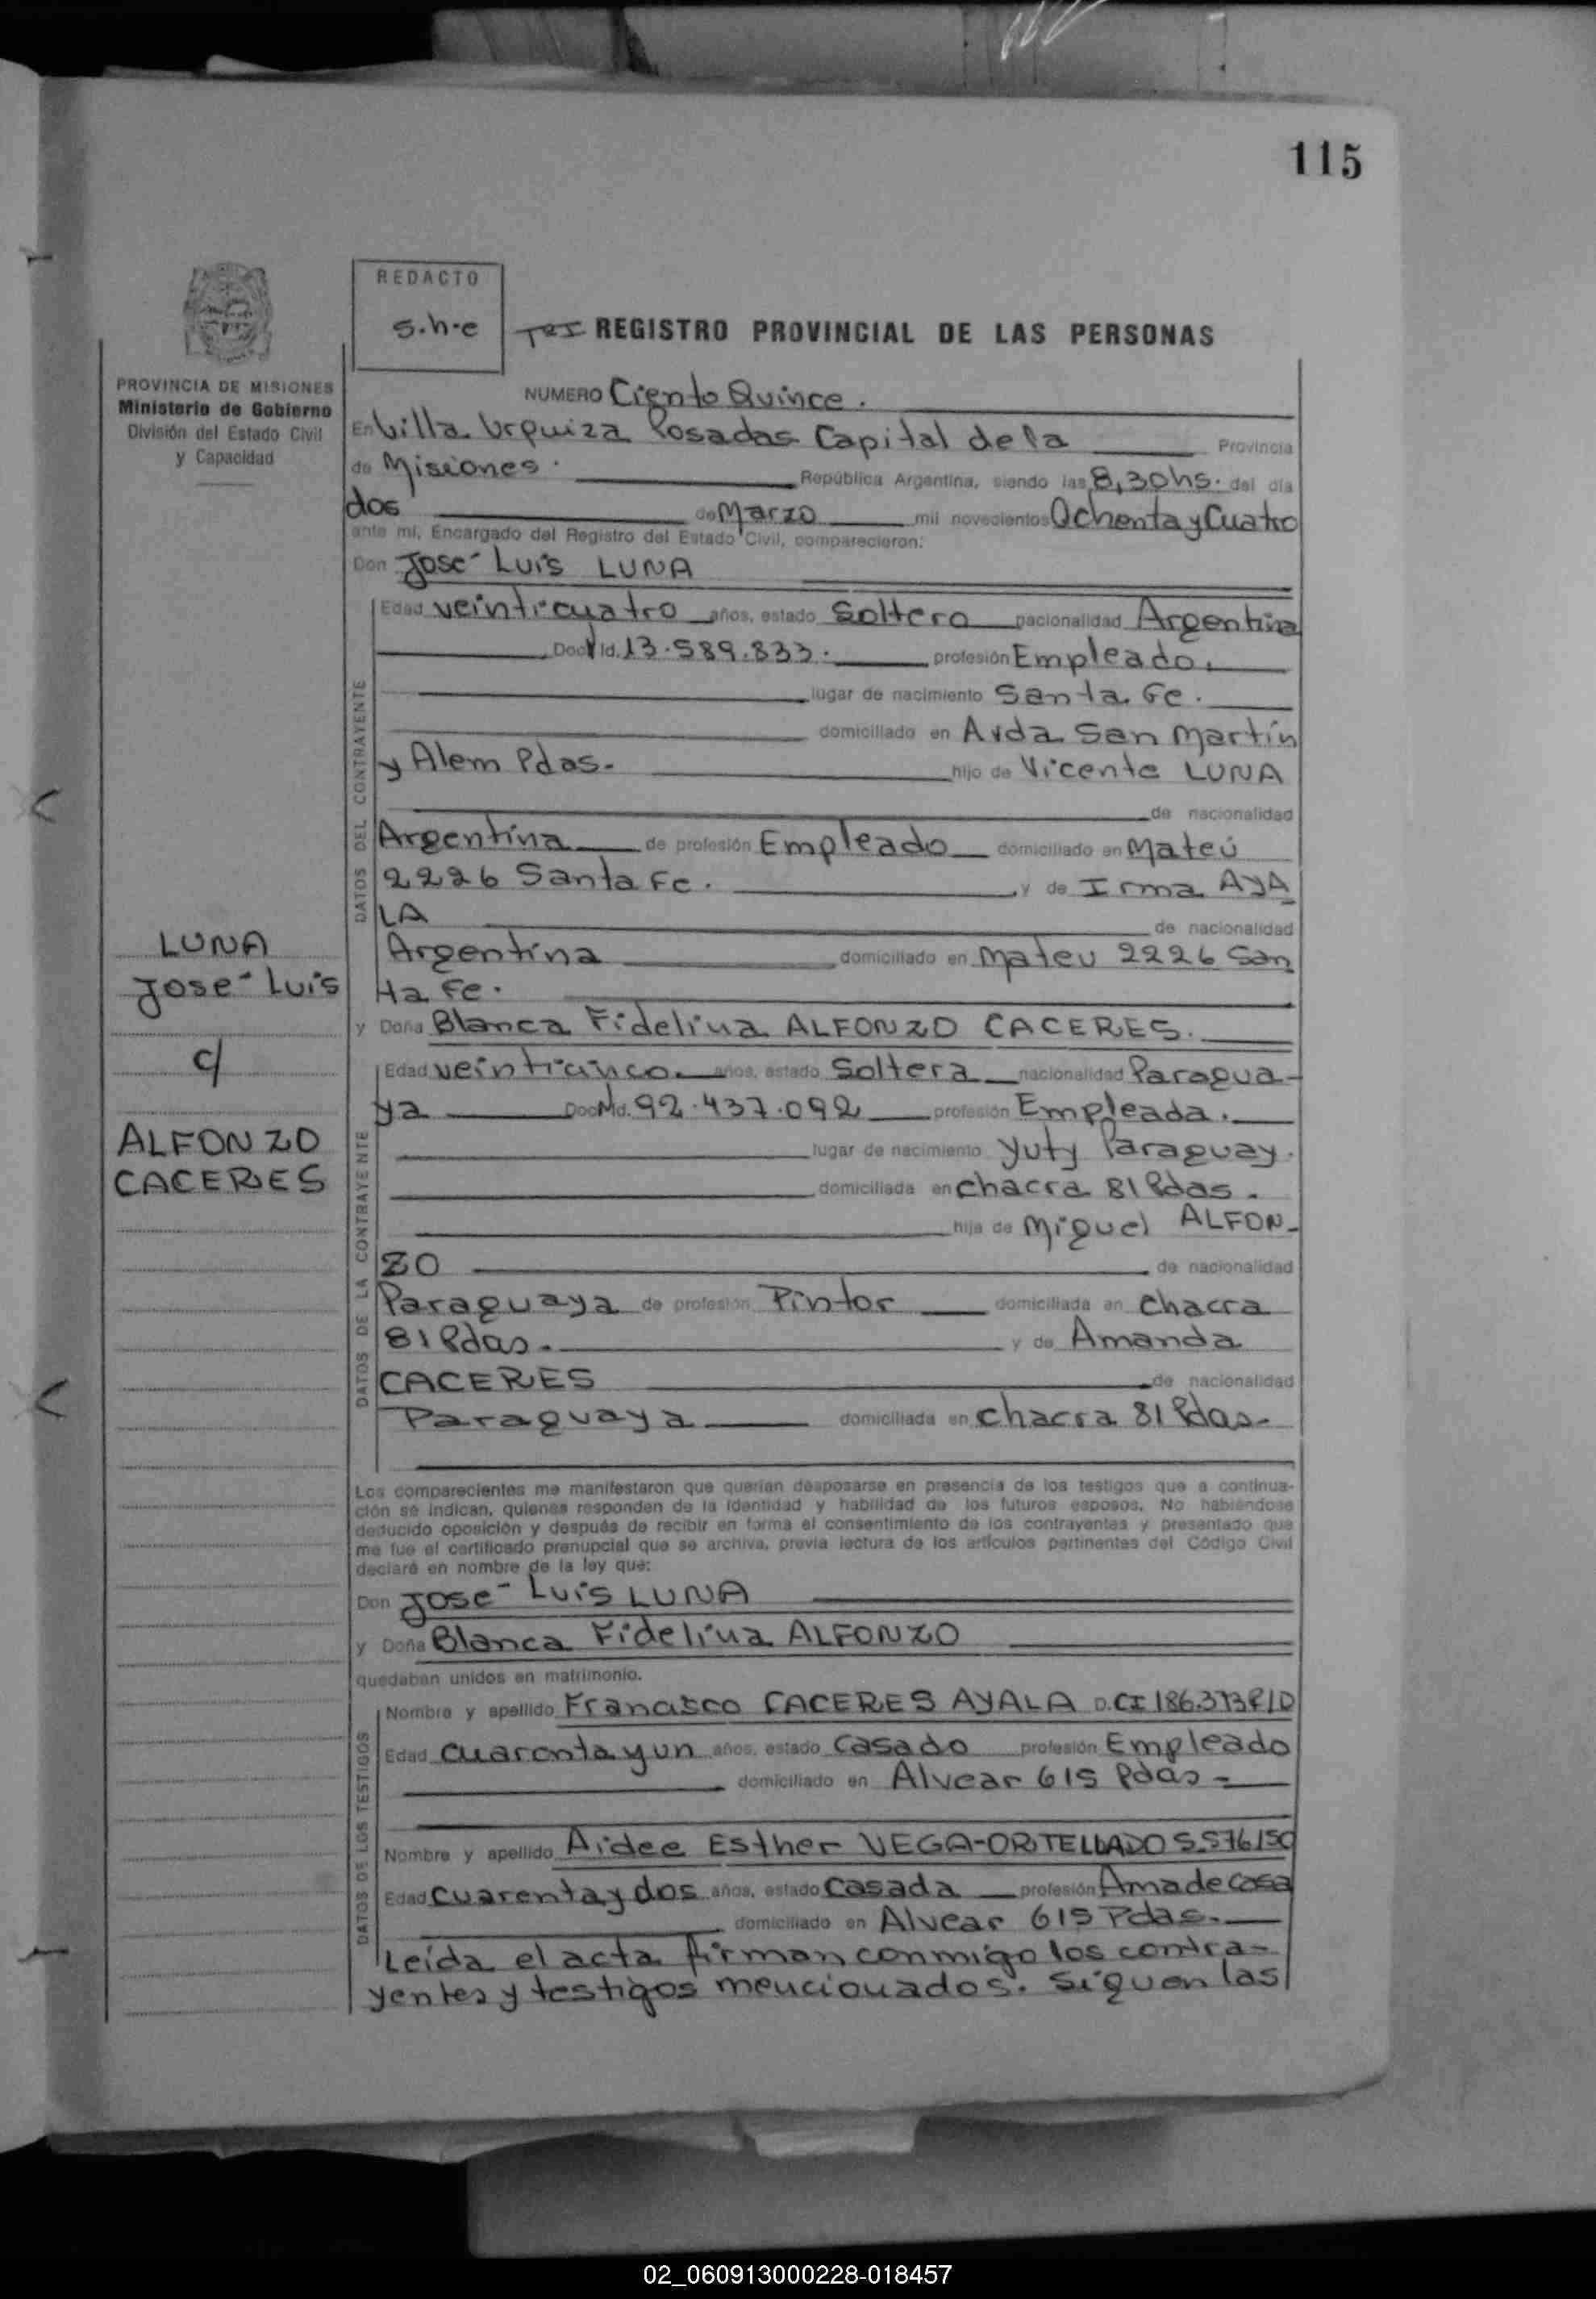 115
REDACTO
s.h.e
REGISTRO PROVINCIAL DE LAS PERSONAS
PROVINCIA DE MISIONES
Ministerio de Gobierno
División del Estado Civil
y Capacidad
NUMERO Ciento Quince.
En Villa Urquiza Posadas Capital de la Provincia
de Misiones. República Argentina, siendo las 8,30hs. del día
dos de Marzo mil novecientos Ochenta y Cuatro
ante mí, Encargado del Registro del Estado Civil, comparecieron:
Don José Luis LUNA
DATOS DEL CONTRAYENTE
Edad veinticuatro años, estado Soltero nacionalidad Argentina
Doc Id. 13.589.833. profesión Empleado.
lugar de nacimiento Santa Fe.
domiciliado en Avda San Martín
y Alem Pdas. hijo de Vicente LUNA
de nacionalidad
Argentina de profesión Empleado domiciliado en Mateú
2226 Santa Fe. y de Irma AYA
LA de nacionalidad
Argentina domiciliado en Mateu 2226 San
ta Fe.
LUNA
José Luis
c/
ALFONZO
CACERES
y Doña Blanca Fidelina ALFONZO CACERES.
DATOS DE LA CONTRAYENTE
Edad veinticinco. años, estado Soltera nacionalidad Paragua-
ya Doc Id. 92.437.092 profesión Empleada.
lugar de nacimiento Yuty Paraguay.
domiciliada en chacra 81 Pdas.
hija de Miguel ALFON-
ZO de nacionalidad
Paraguaya de profesión Pintor domiciliada en chacra
81 Pdas. y de Amanda
CACERES de nacionalidad
Paraguaya domiciliada en chacra 81 Pdas-
Los comparecientes me manifestaron que querían desposarse en presencia de los testigos que a continua-
ción se indican, quienes responden de la identidad y habilidad de los futuros esposos. No habiéndose
deducido oposición y después de recibir en forma el consentimiento de los contrayentes y presentado que
me fue el certificado prenupcial que se archiva, previa lectura de los artículos pertinentes del Código Civil
declaré en nombre de la ley que:
Don José Luis LUNA
y Doña Blanca Fidelina ALFONZO
quedaban unidos en matrimonio.
DATOS DE LOS TESTIGOS
Nombre y apellido Francisco CACERES AYALA D.CI 186.373
Edad cuarenta y un años, estado Casado profesión Empleado
domiciliado en Alvear 615 Pdas-
Nombre y apellido Aidee Esther VEGA-ORTELLADO 5.576.150
Edad Cuarenta y dos años, estado Casada profesión Ama de Casa
domiciliado en Alvear 615 Pdas.
Leída el acta firman conmigo los contra-
yentes y testigos mencionados. Siguen las
02_060913000228-018457